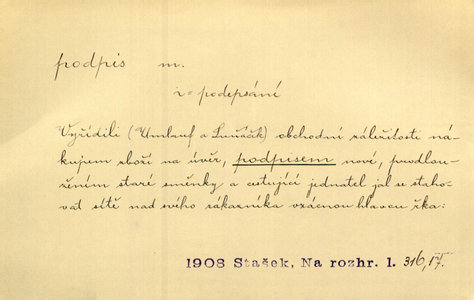 podpis m.
1 = podepsání
Vyřídili (Umlauf a Lusžák) obchodní záležitosti ná-
kupem zboží na úvěr, podpisem nové, prodlou-
žením staré směnky a cestující jednatel jal se staho-
vat sítě nad svého zákazníka vzácnou hlavou řka:
1908 Stašek, Na rozhr. 1. 316, IV.